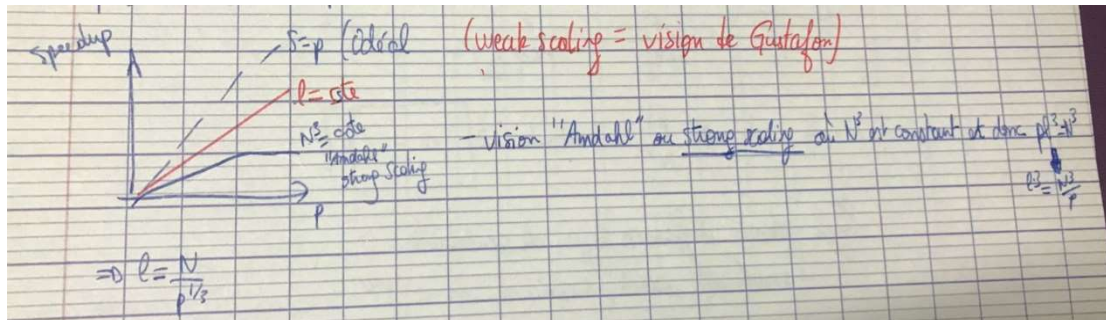 speedup
S=p (idéal
(weak scaling = vision de Gustafon)
l = cste
N³ = cste
"Amdahl"
strong scaling
p
- vision "Amdahl" ou strong scaling où N³ est constant et donc pl³=N³
l³ = N³/p
=> l = N/p^1/3